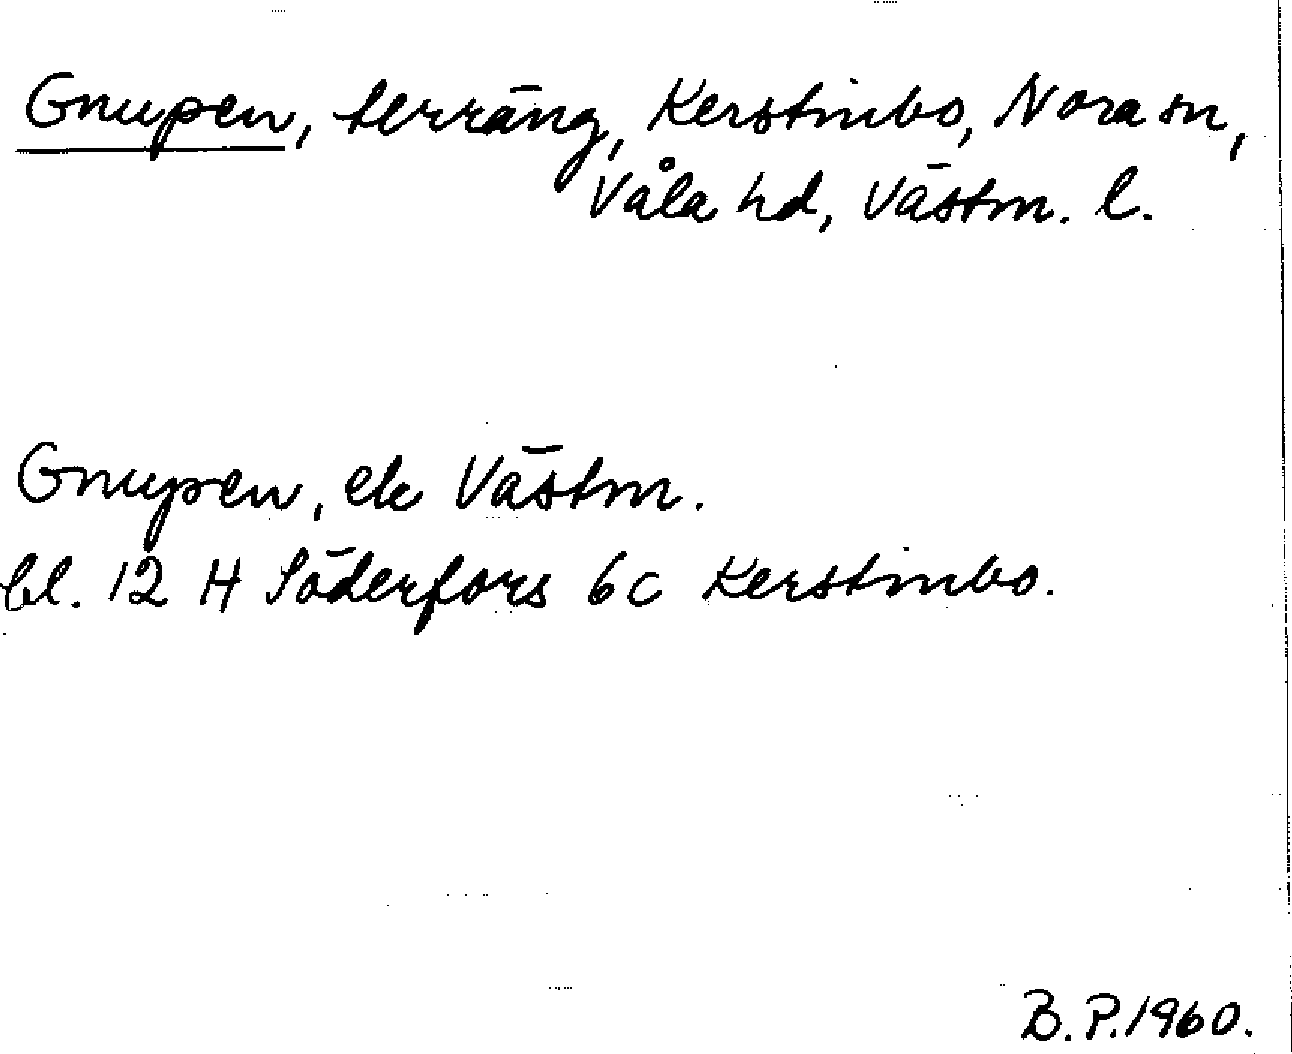 Gnupen, terräng, Kerstinbo, Nora sn,
Våla hd, Västm. l.
Gnupen, ek Västm.
bl. 12 H Söderfors 6c Kerstinbo.
B.P. 1960.